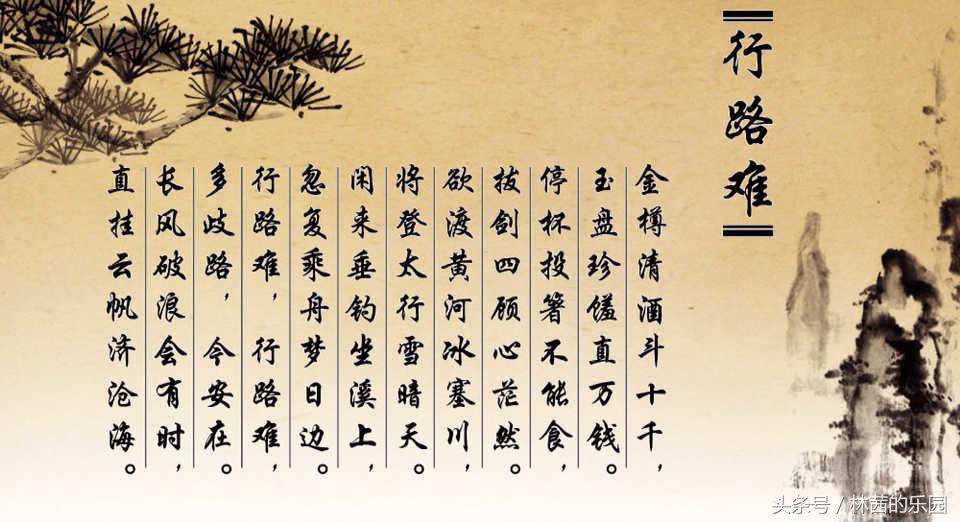 行路难
金樽清酒斗十千，
玉盘珍馐直万钱。
停杯投箸不能食，
拔剑四顾心茫然。
欲渡黄河冰塞川，
将登太行雪暗天。
闲来垂钓坐溪上，
忽复乘舟梦日边。
行路难，行路难，
多歧路，今安在。
长风破浪会有时，
直挂云帆济沧海。
头条号 / 林茜的乐园